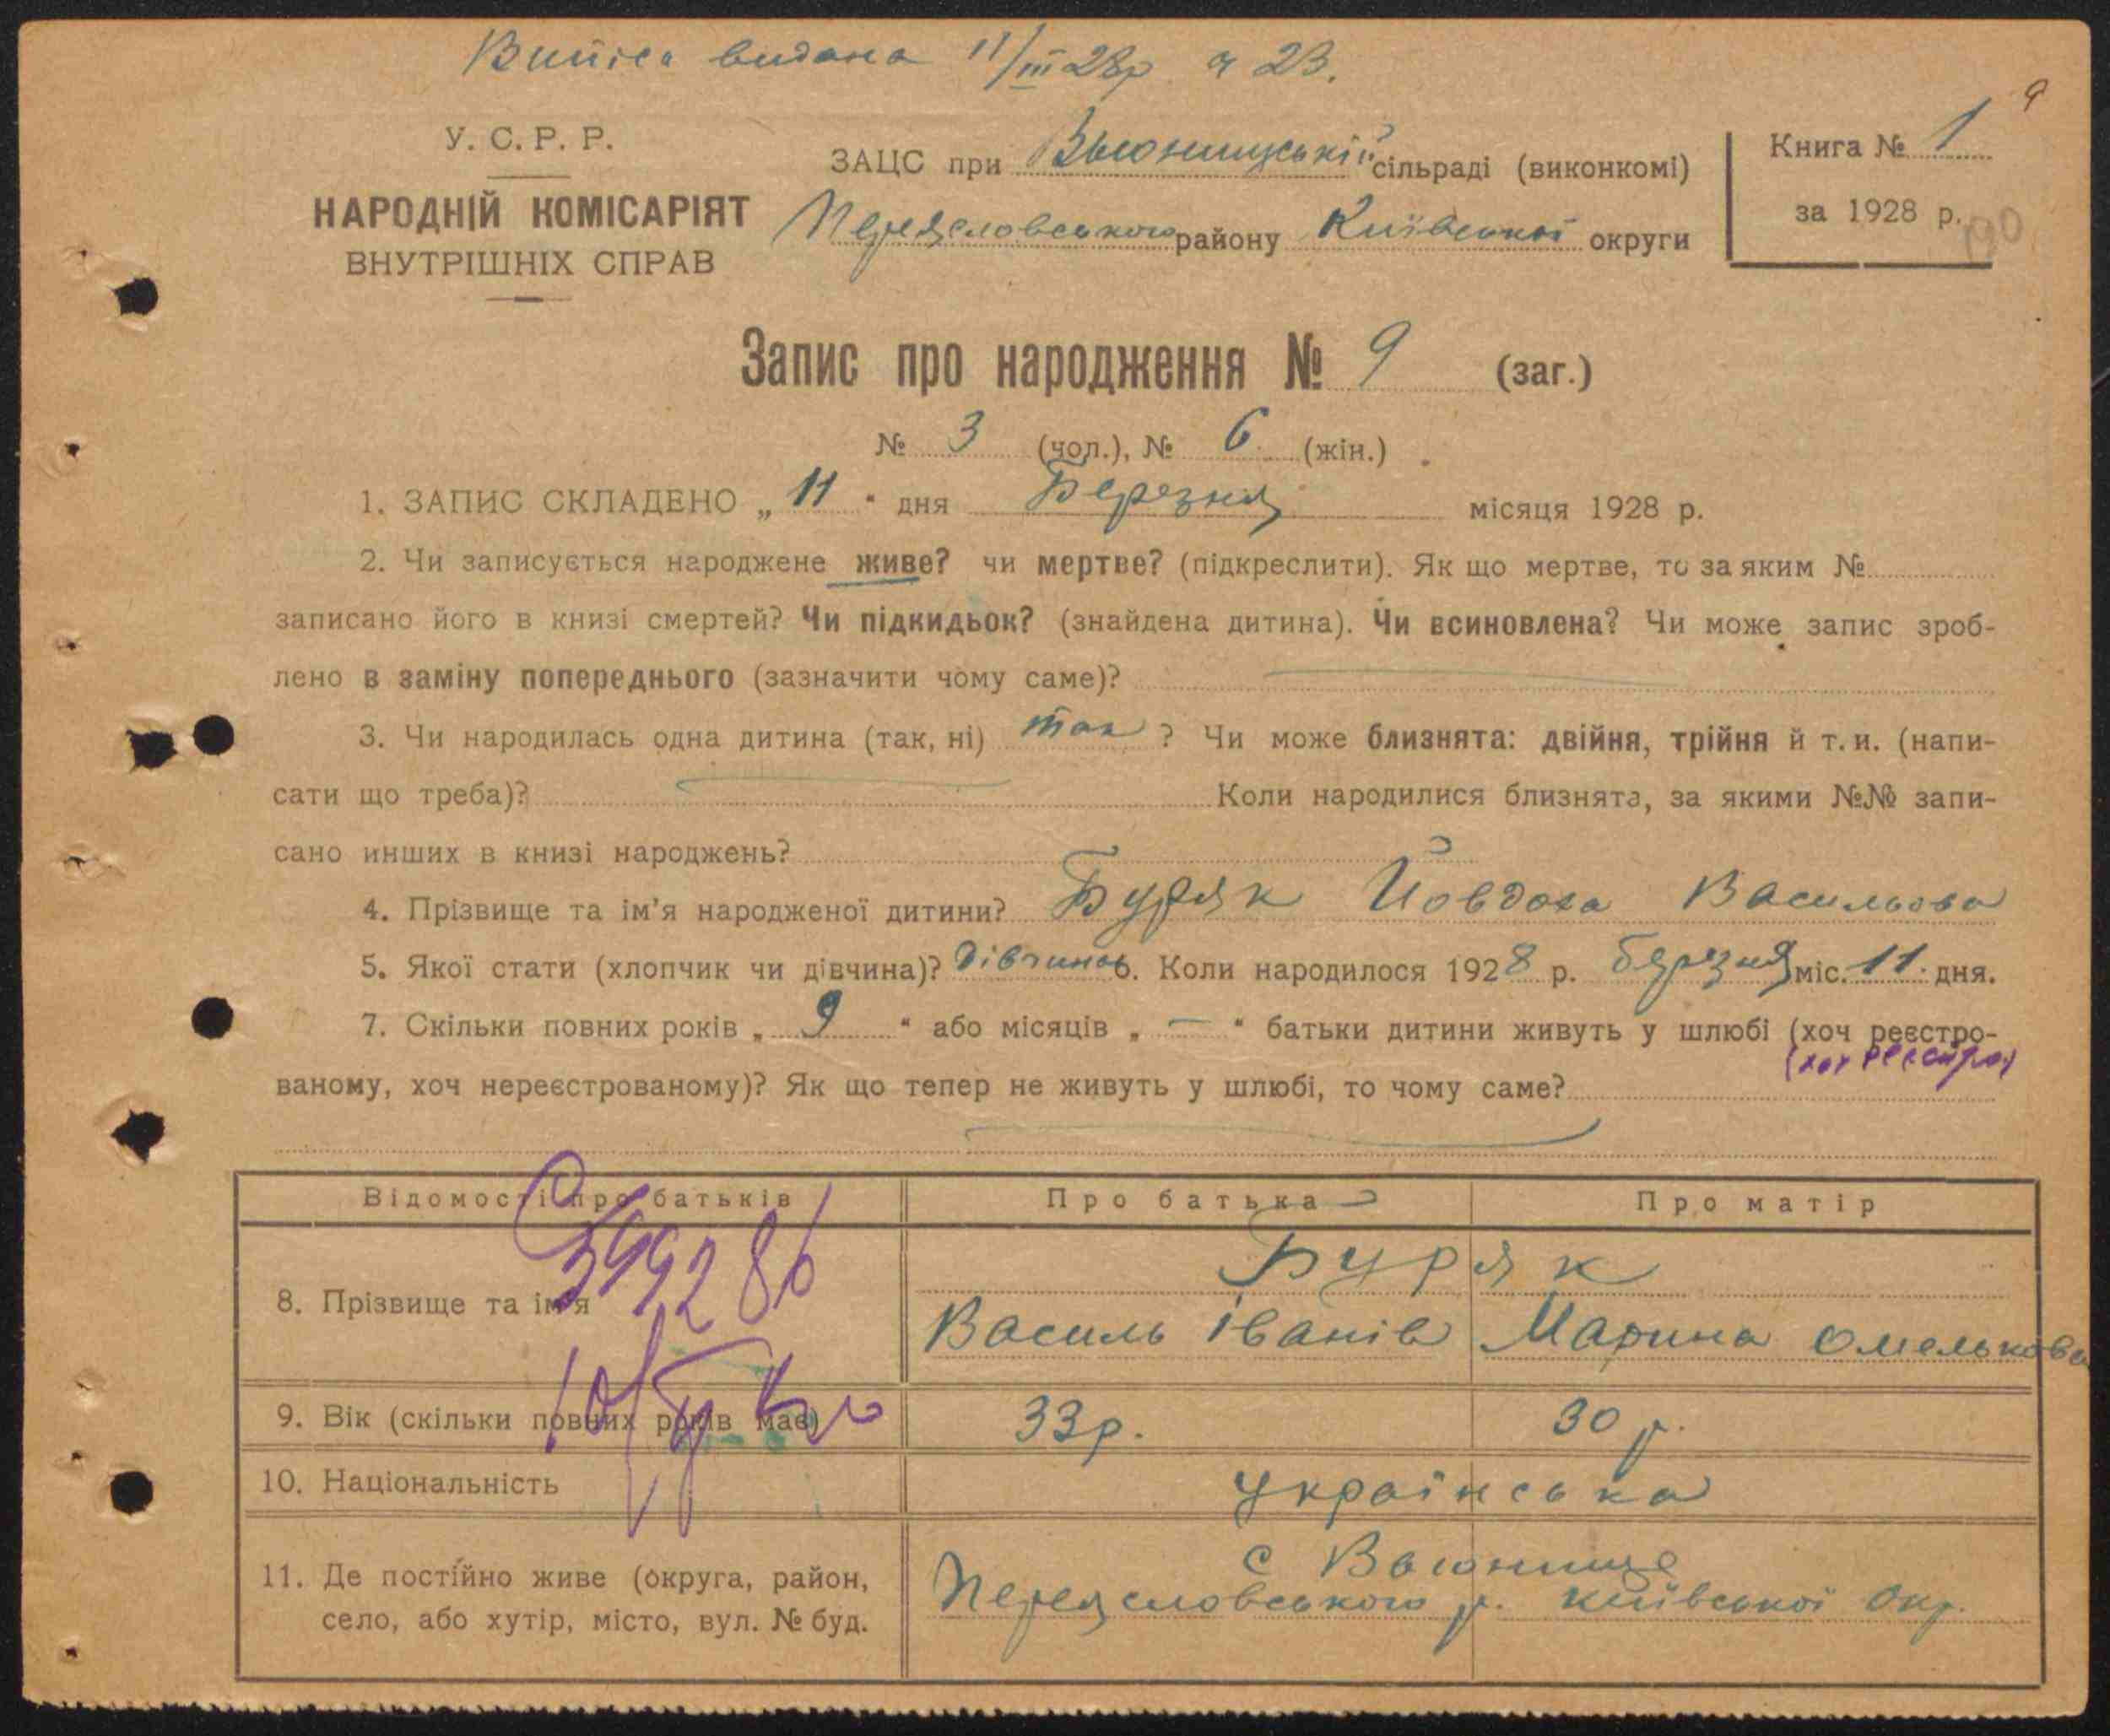 Випись видана 11/III 28р ч 23.
9
У. С. Р. Р.
НАРОДНІЙ КОМІСАРІЯТ
ВНУТРІШНІХ СПРАВ
ЗАЦС при Вьюнищській сільраді (виконкомі)
Переясловського району Київської округи
Книга № 1
за 1928 р.
Запис про народження № 9 (заг.)
№ 3 (чол.), № 6 (жін.)
1. ЗАПИС СКЛАДЕНО „ 11 “ дня Березня місяця 1928 р.
2. Чи записується народжене живе? чи мертве? (підкреслити). Як що мертве, то за яким №
записано його в книзі смертей? Чи підкидьок? (знайдена дитина). Чи всиновлена? Чи може запис зроб-
лено в заміну попереднього (зазначити чому саме)?
3. Чи народилась одна дитина (так, ні) так ? Чи може близнята: двійня, трійня й т. и. (напи-
сати що треба)? Коли народилися близнята, за якими №№ запи-
сано инших в книзі народжень?
4. Прізвище та ім’я народженої дитини? Буряк Йовдоха Васильова
5. Якої стати (хлопчик чи дівчина)? Дівчина 6. Коли народилося 1928 р. березня міс. 11 дня.
7. Скільки повних років „ 9 “ або місяців „ — “ батьки дитини живуть у шлюбі (хоч реєстро-
(хоч реєстро)
ваному, хоч нереєстрованому)? Як що тепер не живуть у шлюбі, то чому саме?
Відомості про батьків Про батька Про матір
8. Прізвище та ім’я Буряк
Василь Іванів Марина Омелькова
9. Вік (скільки повних років має) 33р. 30 р.
10. Національність українська
11. Де постійно живе (округа, район, с Вьюнище
село, або хутір, місто, вул. № буд. Переясловського р. Київської Окр.